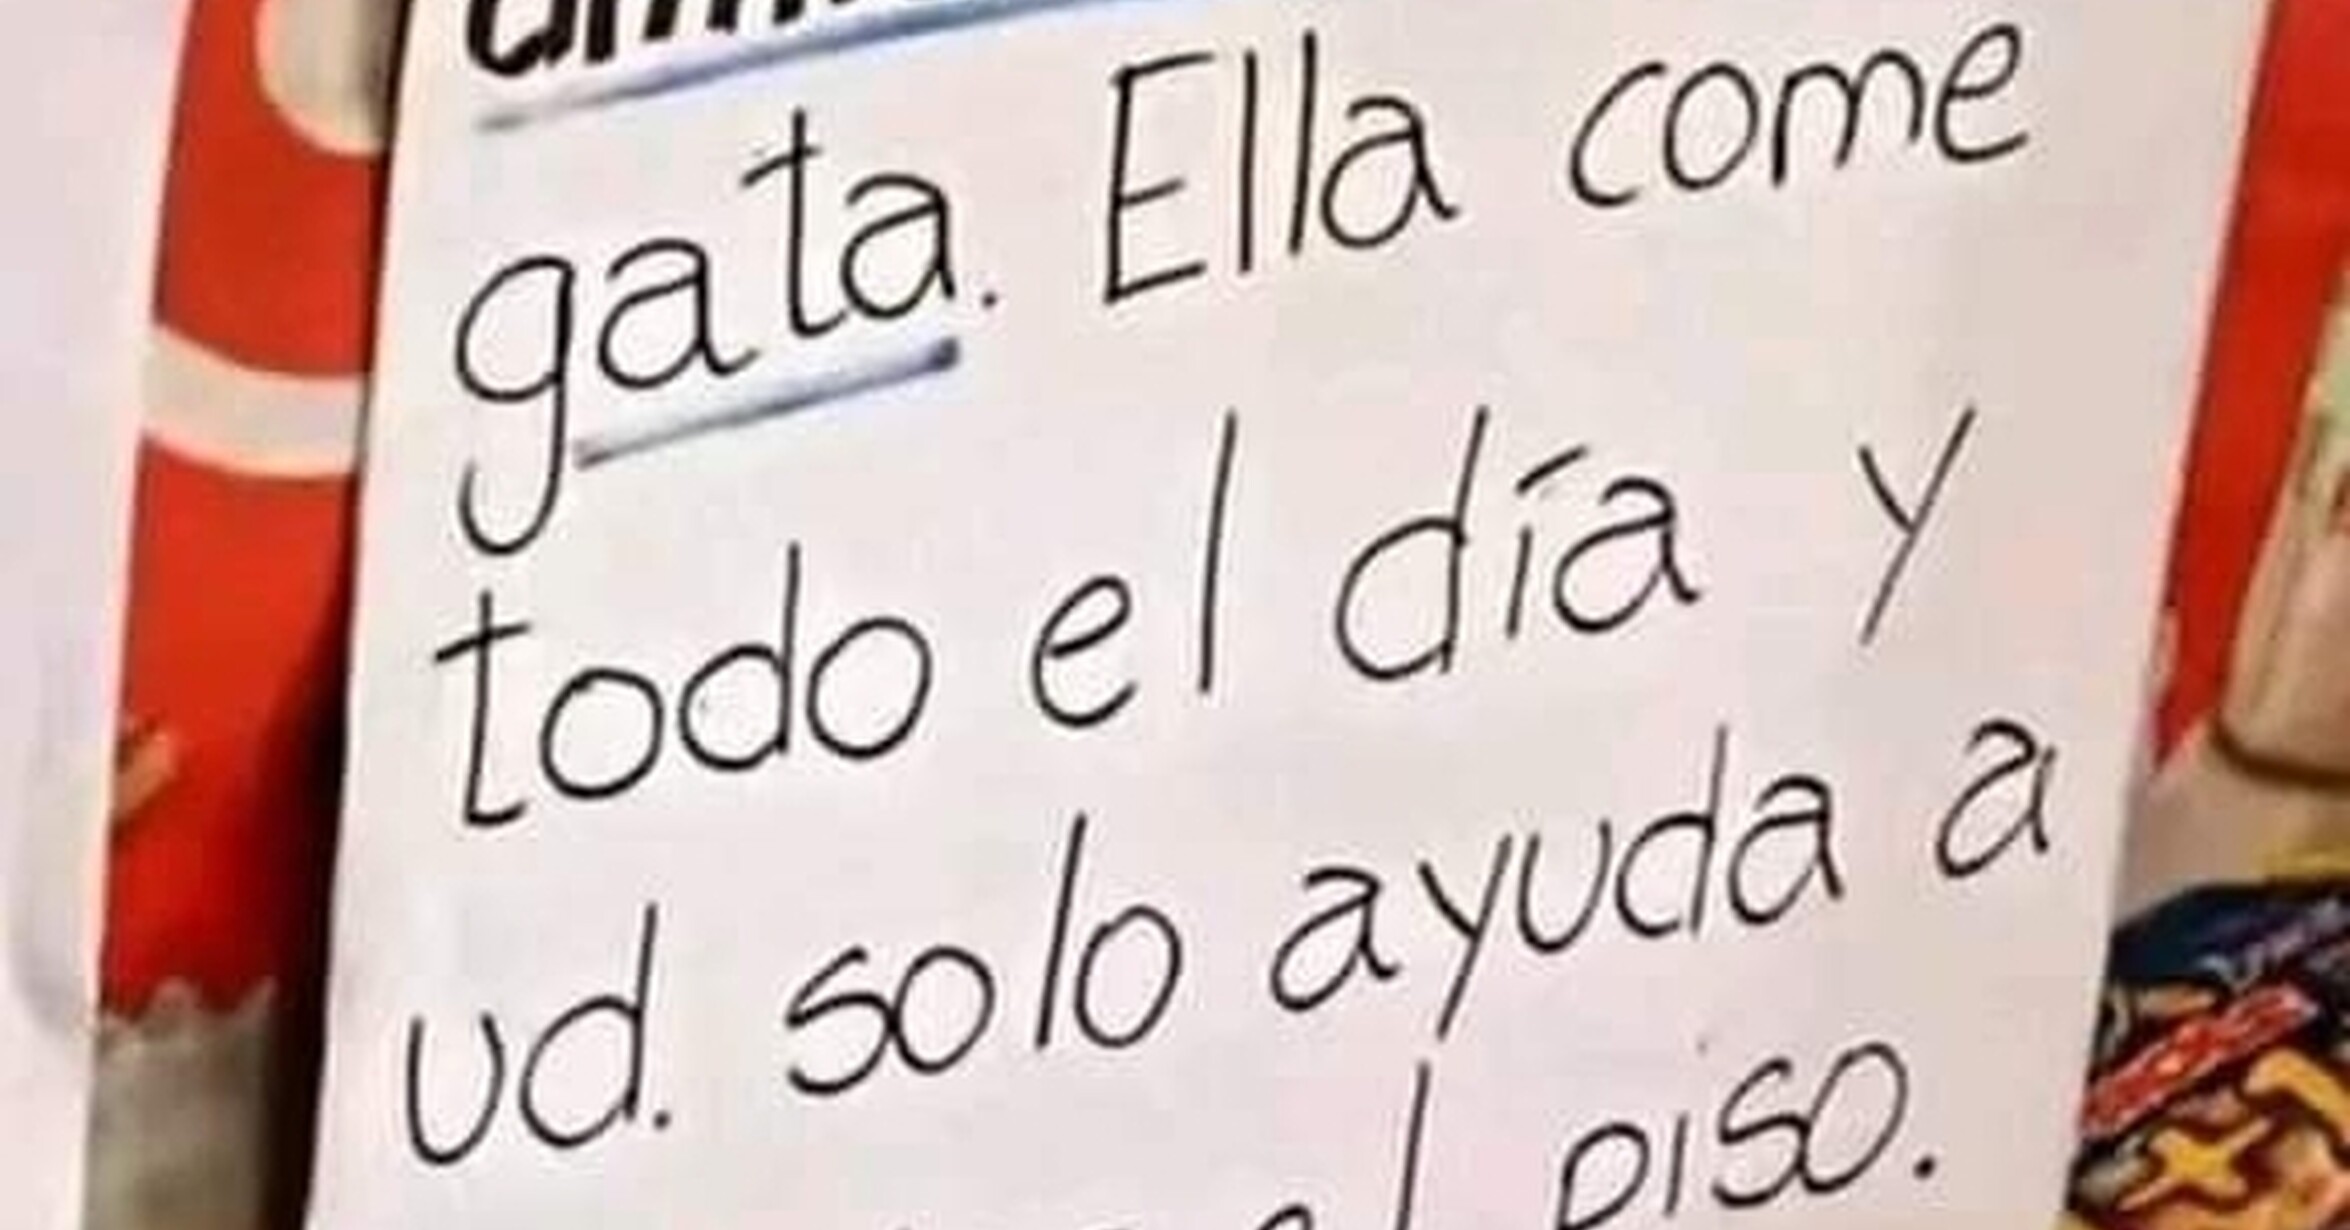 gata. Ella come
todo el día y
ud. solo ayuda a
el piso.